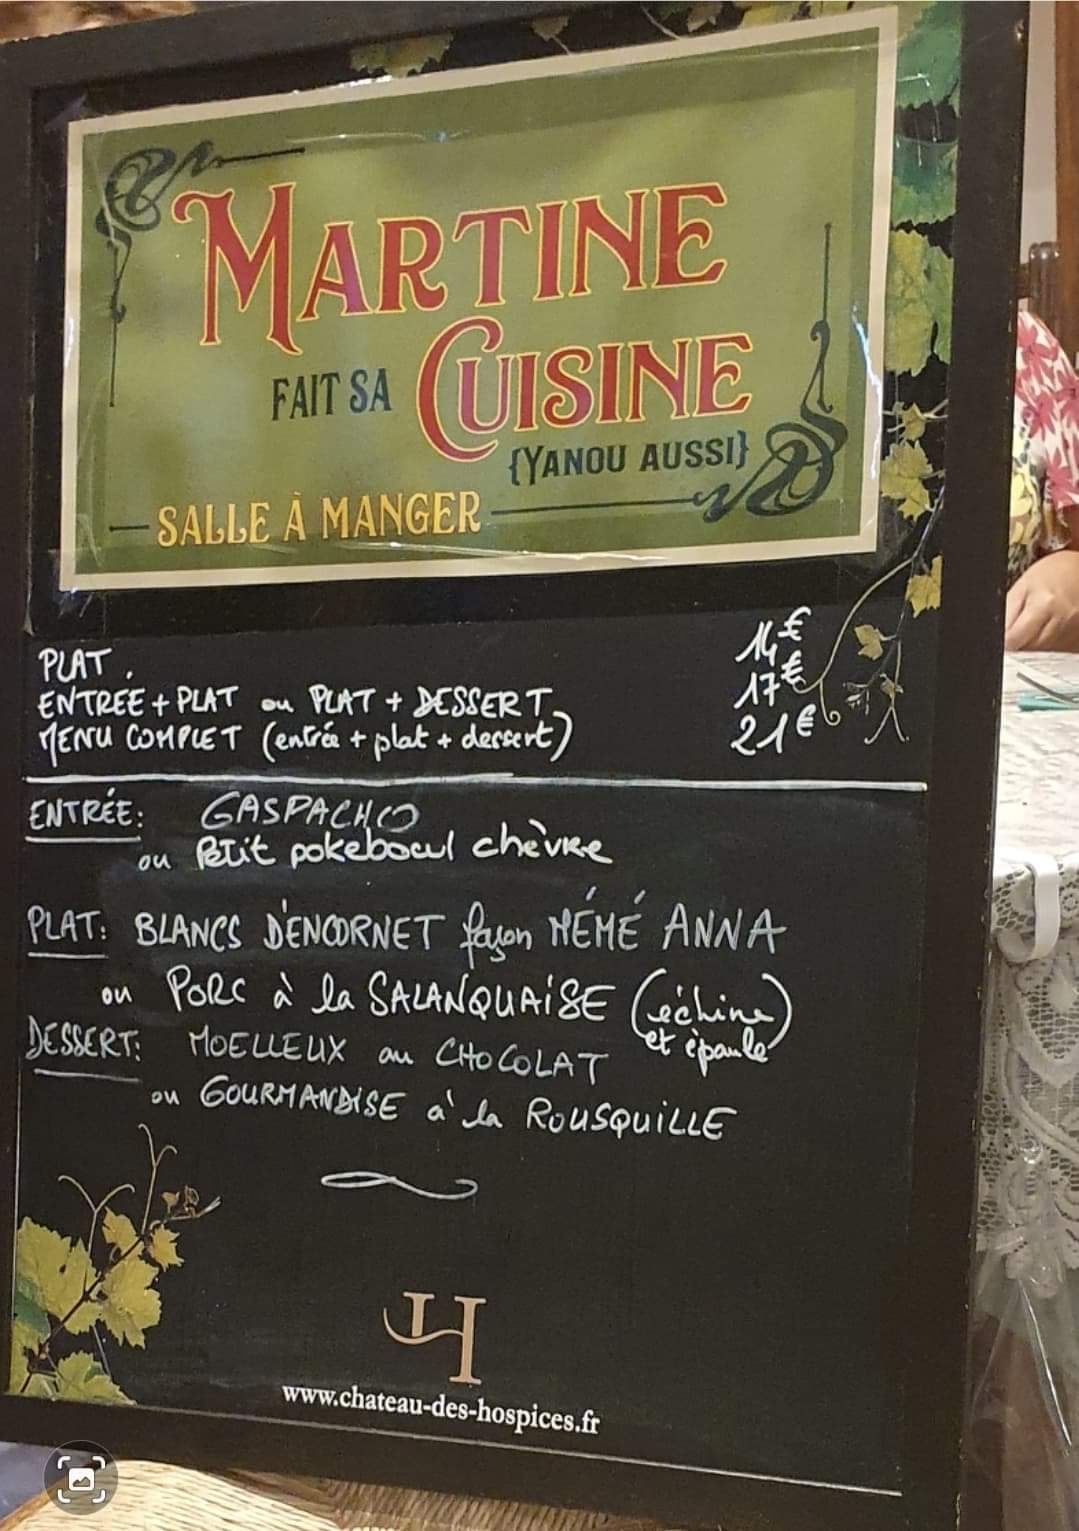 MARTINE
FAIT SA CUISINE
{YANOU AUSSI}
SALLE À MANGER
PLAT. 14€
ENTREE + PLAT ou PLAT + DESSERT 17€
MENU COMPLET (entrée + plat + dessert) 21€
ENTRÉE: GASPACHO
ou Petit pokebowl chèvre
PLAT: BLANCS D'ENCORNET façon MÉMÉ ANNA
ou PORC à la SALANQUAiSE (échine
et épaule)
DESSERT: MOELLEUX au CHOCOLAT
ou GOURMANDISE à la ROUSQUiLLE
H
www.chateau-des-hospices.fr